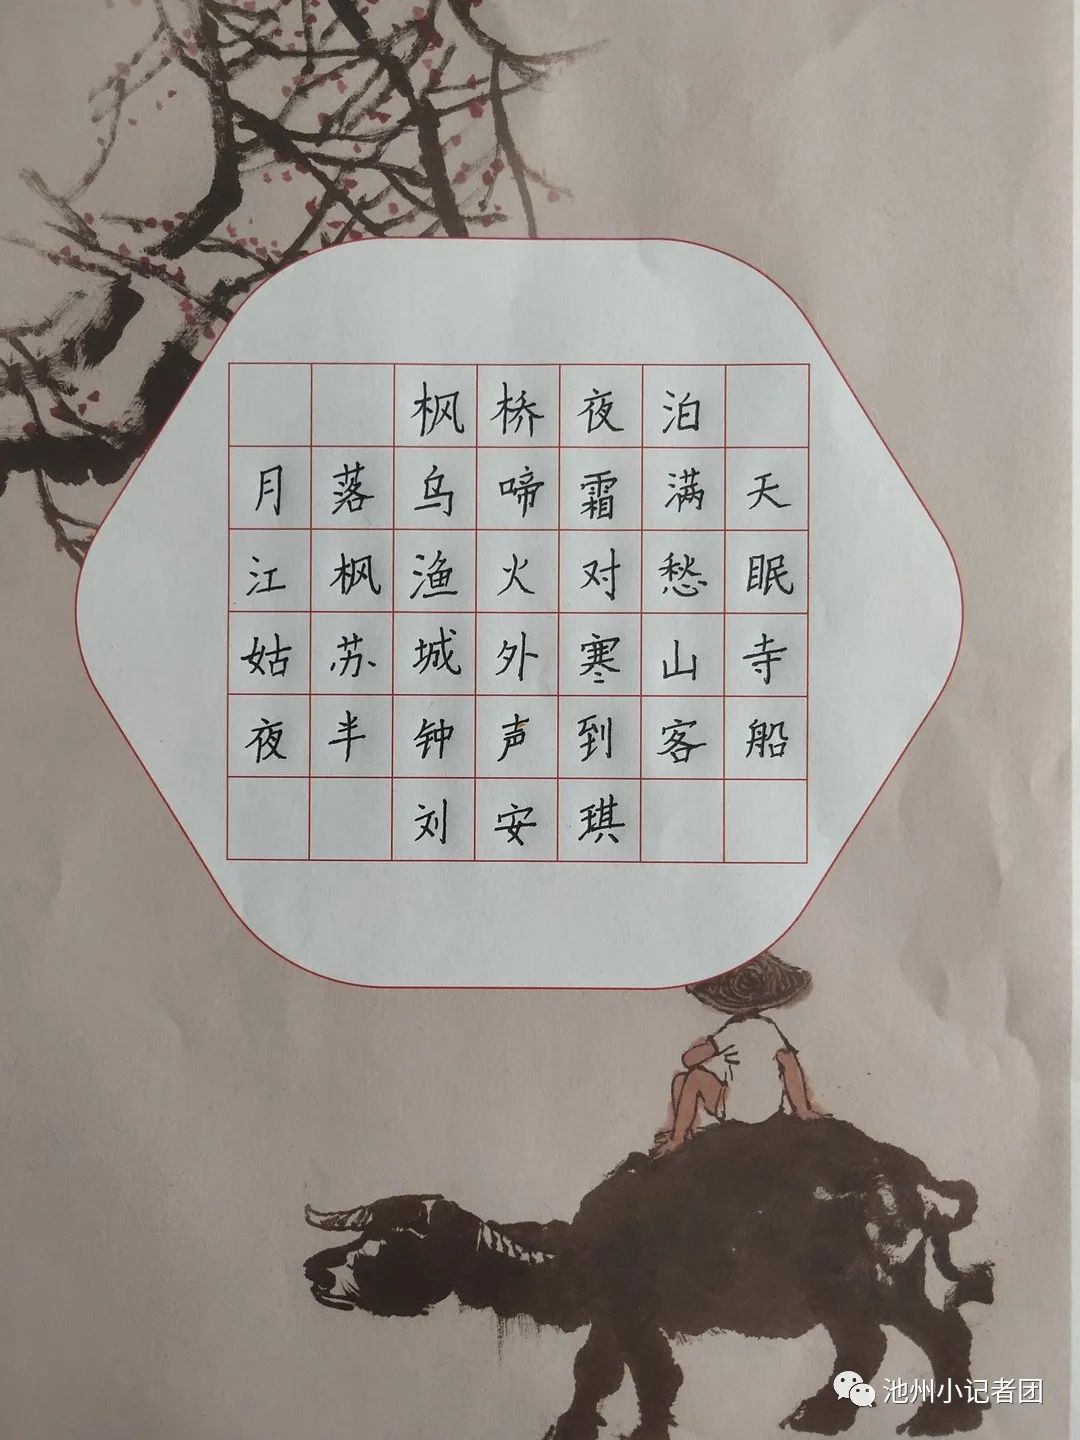 枫桥夜泊
月落乌啼霜满天
江枫渔火对愁眠
姑苏城外寒山寺
夜半钟声到客船
刘安琪
池州小记者团